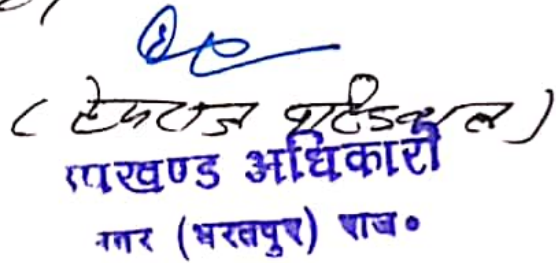 (हेमराज
उपखण्ड अधिकारी
नगर (भरतपुर) राज०